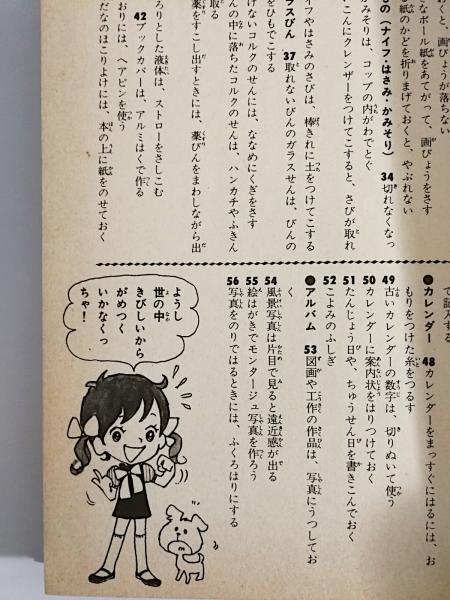 おくと、画びょうが落ちない
きなボール紙をあてがって、画びょうをさす
紙のかどを折りまげておくと、やぶれない
の（ナイフ・はさみ・かみそり） 34切れなくなっ
みそりは、コップの内がわでとぐ
こんにクレンザーをつけてこすると、さびが取れ
イフやはさみのさびは、棒きれに土をつけてこする
ラスびん 37取れないびんのガラスせんは、びんの
をひもでこする
けないコルクのせんには、ななめにくぎをさす
んの中に落ちたコルクのせんは、ハンカチやふきん
取る
薬をすこし出すときには、薬びんをまわしながら出
ろりとした液体は、ストローをさしこむ
42ブックカバーは、アルミはくで作る
おりには、ヘアピンを使う
だなのほこりよけには、本の上に紙をのせておく
て記入する
●カレンダー 48カレンダーをまっすぐにはるには、お
もりをつけた糸をつるす
49古いカレンダーの数字は、切りぬいて使う
50カレンダーに案内状をはりつけておく
51たんじょう日や、ちゅうせん日を書きこんでおく
52こよみのふしぎ
●アルバム 53図画や工作の作品は、写真にうつしてお
く
54風景写真は片目で見ると遠近感が出る
55絵はがきでモンタージュ写真を作ろう
56写真をのりではるときには、ふくろはりにする
ようし
世の中
きびしいから
がめつく
いかなくっ
ちゃ！